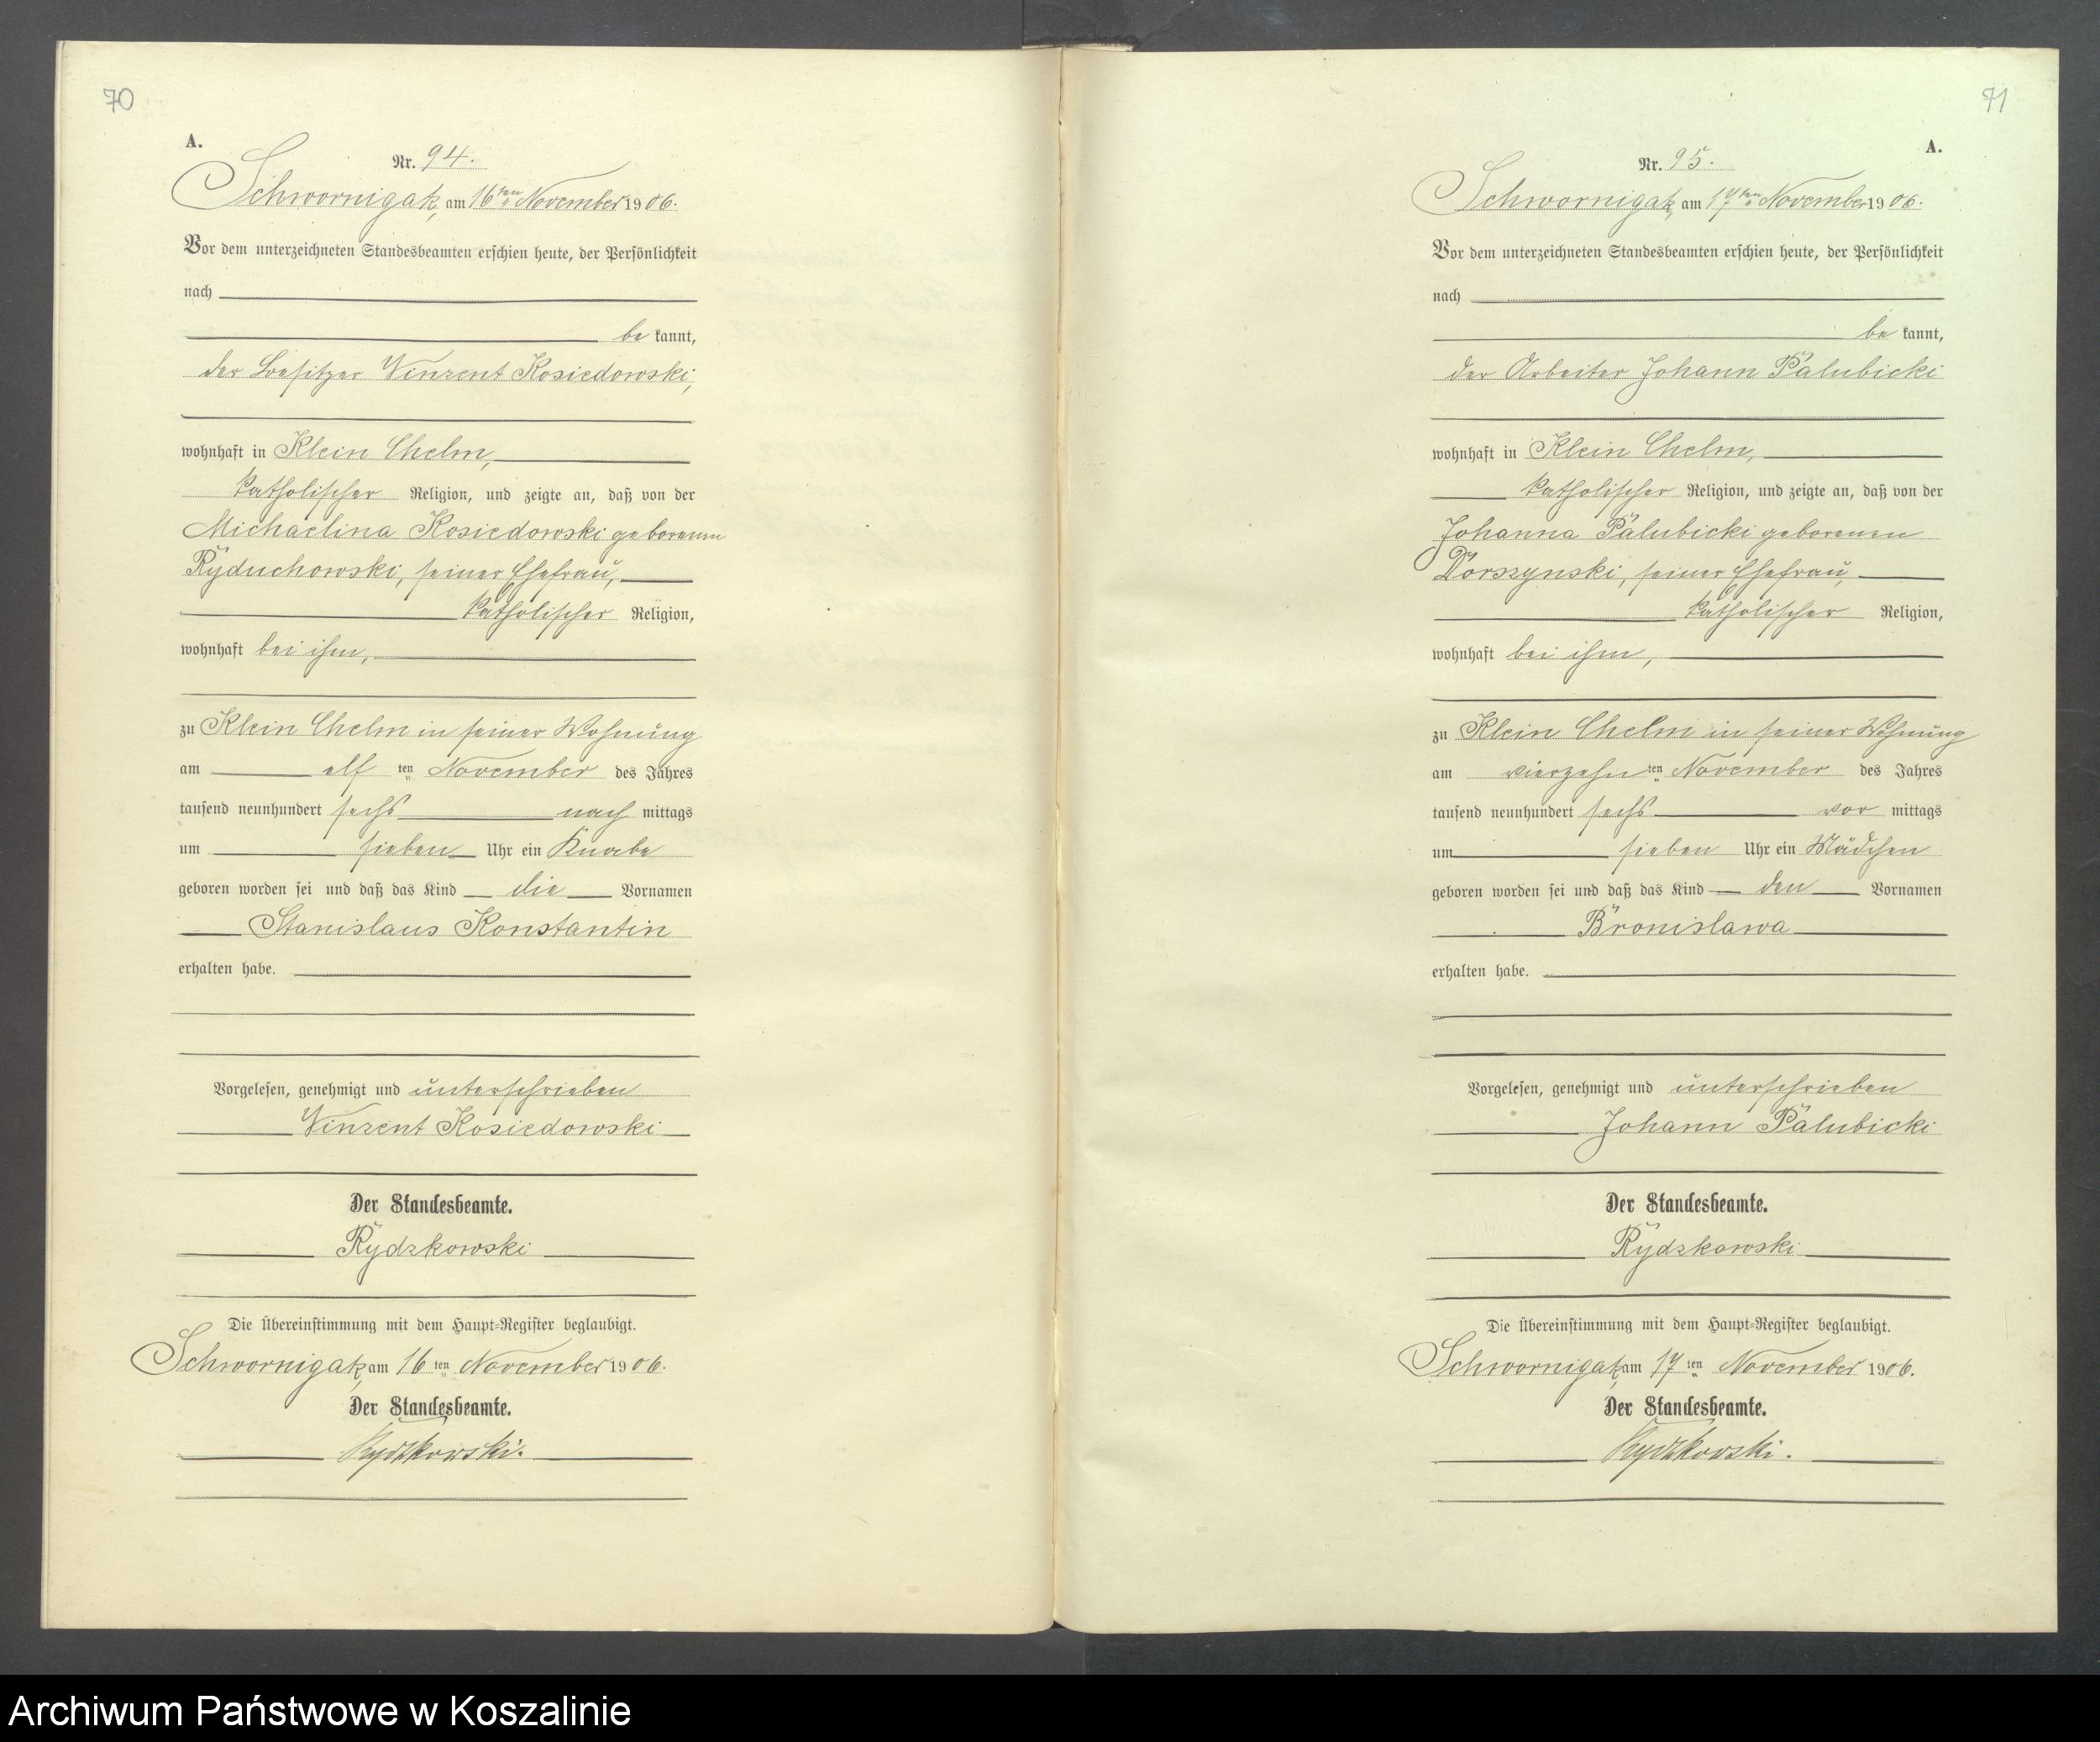 70
A.
Nr. 94.
Schwornigatz, am 16ten November 1906.
Vor dem unterzeichneten Standesbeamten erschien heute, der Persönlichkeit
nach
be kannt,
der Besitzer Vinzent Kosiedowski,
wohnhaft in Klein Chelm,
katholischer Religion, und zeigte an, daß von der
Michaelina Kosiedowski geborenen
Ryduchowski, seiner Ehefrau,
katholischer Religion,
wohnhaft bei ihm,
zu Klein Chelm in seiner Wohnung
am elf ten November des Jahres
tausend neunhundert sechs nach mittags
um sieben Uhr ein Knabe
geboren worden sei und daß das Kind die Vornamen
Stanislaus Konstantin
erhalten habe.
Vorgelesen, genehmigt und unterschrieben
Vinzent Kosiedowski
Der Standesbeamte.
Rydzkowski
Die Übereinstimmung mit dem Haupt-Register beglaubigt.
Schwornigatz, am 16 ten November 1906.
Der Standesbeamte.
Rydzkowski.
71
A.
Nr. 95.
Schwornigatz, am 17ten November 1906.
Vor dem unterzeichneten Standesbeamten erschien heute, der Persönlichkeit
nach
be kannt,
der Arbeiter Johann Palubicki
wohnhaft in Klein Chelm,
katholischer Religion, und zeigte an, daß von der
Johanna Palubicki geborenen
Dorszynski, seiner Ehefrau,
katholischer Religion,
wohnhaft bei ihm,
zu Klein Chelm in seiner Wohnung
am vierzehn ten November des Jahres
tausend neunhundert sechs vor mittags
um sieben Uhr ein Mädchen
geboren worden sei und daß das Kind den Vornamen
Bronislawa
erhalten habe.
Vorgelesen, genehmigt und unterschrieben
Johann Palubicki
Der Standesbeamte.
Rydzkowski
Die Übereinstimmung mit dem Haupt-Register beglaubigt.
Schwornigatz, am 17 ten November 1906.
Der Standesbeamte.
Rydzkowski.
Archiwum Państwowe w Koszalinie